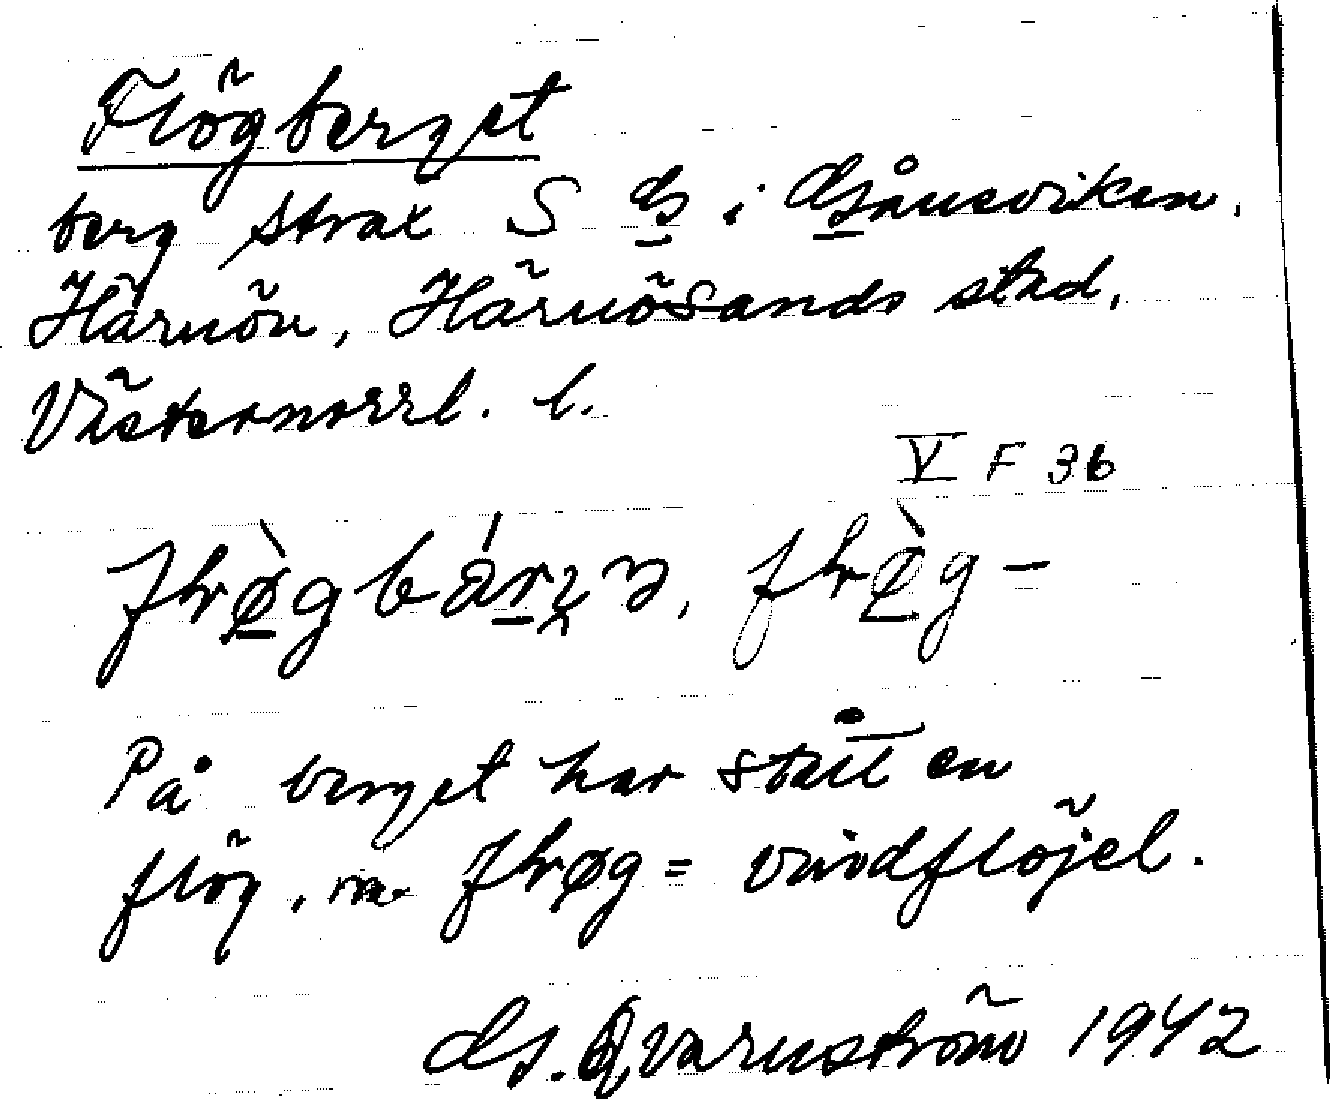 Flögberget
berg strax S G i Gånsviken,
Härnön, Härnösands stad,
Västernorrl. l.
V F 36
På berget har stått en
flög, m = vindflöjel.
G. Qvarnström 1942